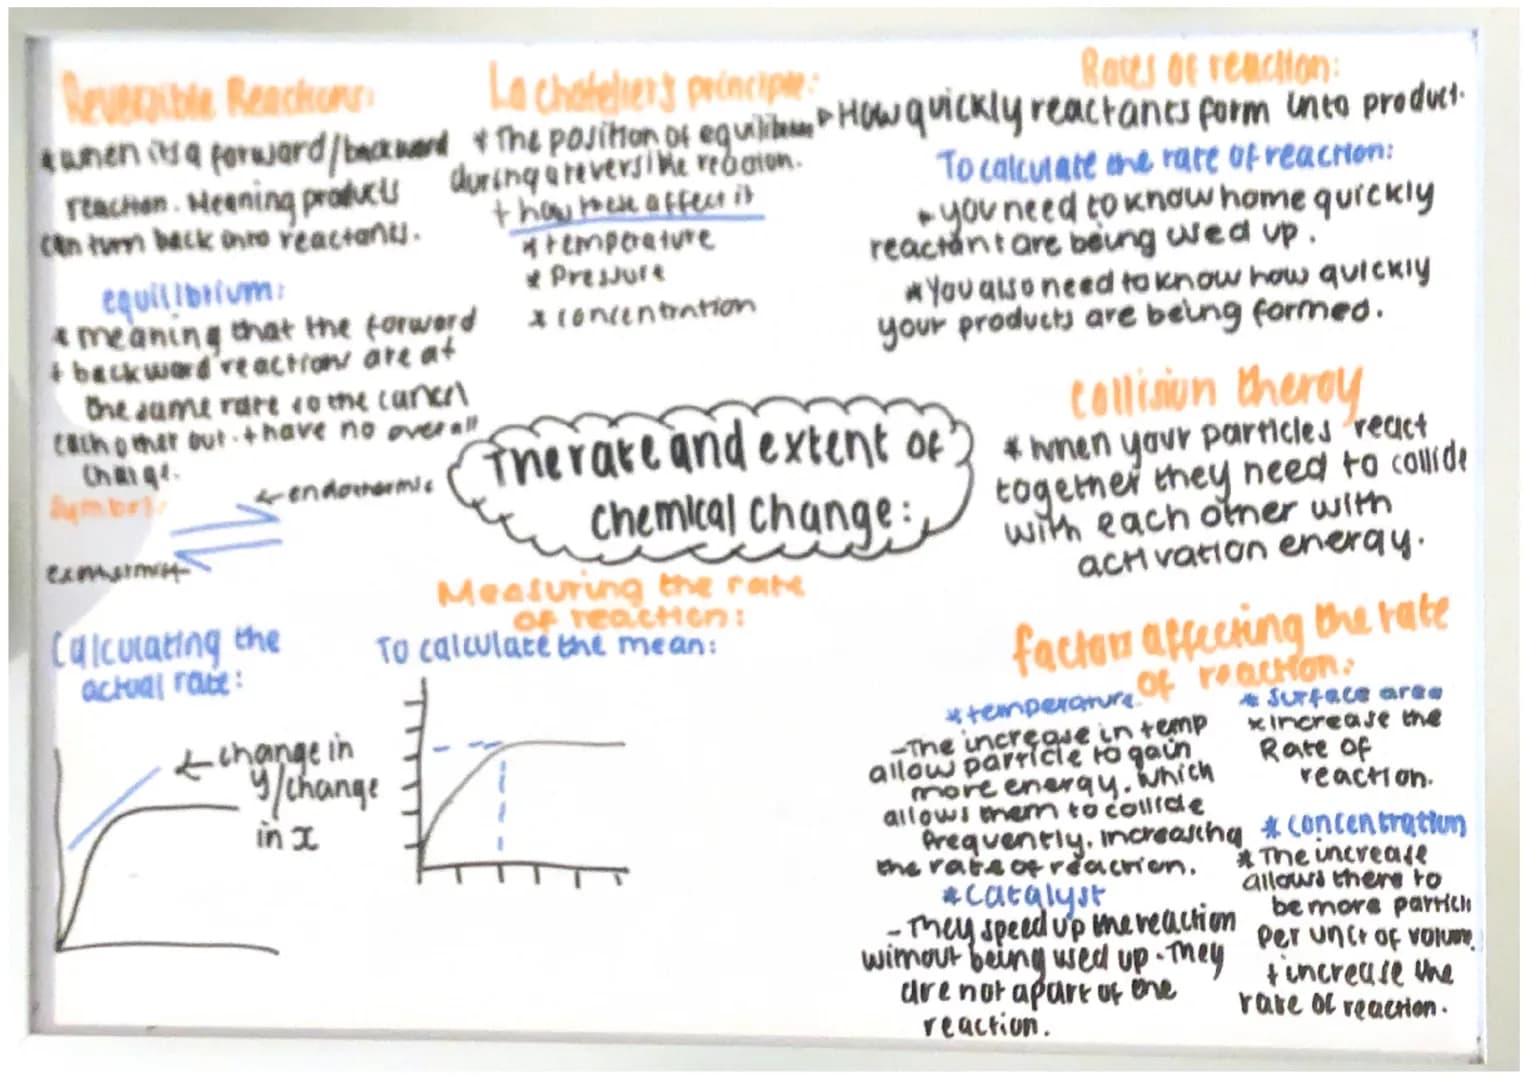 Reversible Reactions:
* when its a forward/backward
reaction. Meaning products
can turn back into reactants.
equilibrium:
* meaning that the forward
+ backward reactions are at
the same rate so the cancel
each other out. + have no overall
change.
Symbol:
← endothermic
exothermic
La chatelier's principle:
* The position of equilibrium
during a reversible reaction.
+ how these affect it
* temperature
* Pressure
* concentration
Rates of reaction:
How quickly reactants form into product.
To calculate the rate of reaction:
you need to know home quickly
reactant are being used up.
* You also need to know how quickly
your products are being formed.
The rate and extent of
chemical change:
Collision theroy
* when your particles react
together they need to collide
with each other with
activation energy.
Calculating the
actual rate:
← change in
y/change
in x
Measuring the rate
of reaction:
To calculate the mean:
factors affecting the rate
of reaction:
* temperature
- The increase in temp
allow particle to gain
more energy. Which
allows them to collide
frequently. Increasing
the rate of reaction.
* Catalyst
- They speed up the reaction
without being used up. They
are not apart of the
reaction.
* Surface area
* Increase the
Rate of
reaction.
* Concentration
* The increase
allows there to
be more particls
per unit of volume
+ increase the
rate of reaction.